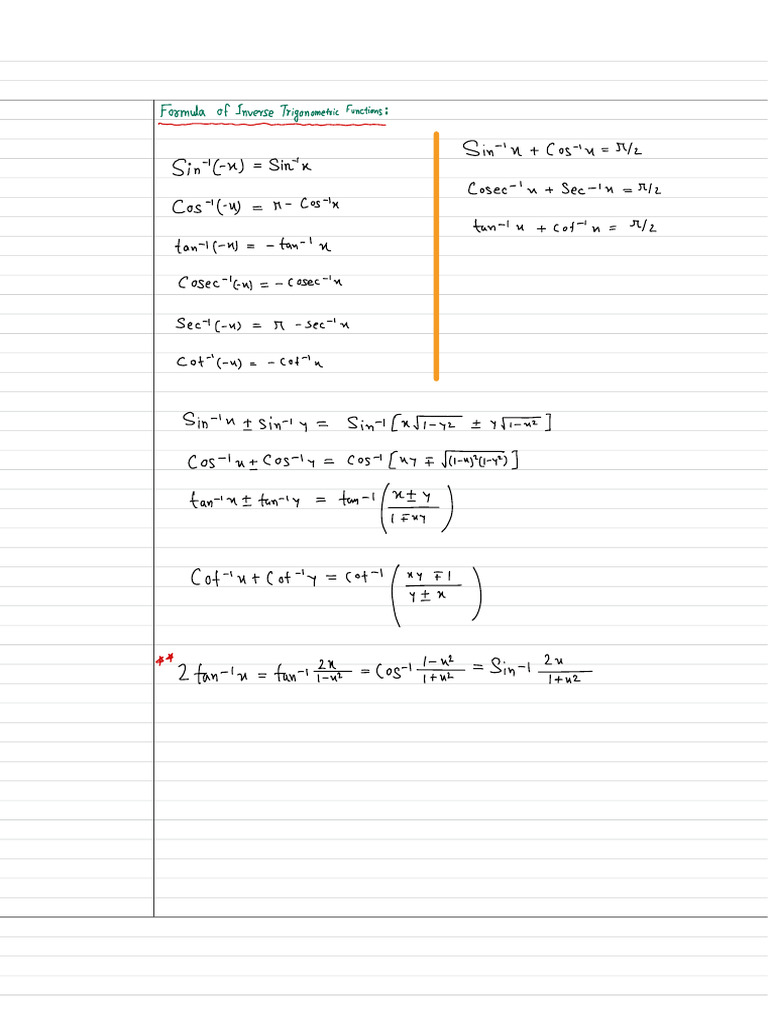 Formula of Inverse Trigonometric Functions:
Sin⁻¹(-x) = Sin⁻¹x
Cos⁻¹(-x) = π - Cos⁻¹x
tan⁻¹(-x) = - tan⁻¹ x
Cosec⁻¹(-x) = - cosec⁻¹x
Sec⁻¹(-x) = π - sec⁻¹x
Cot⁻¹(-x) = - cot⁻¹x
Sin⁻¹x + Cos⁻¹x = π/2
Cosec⁻¹x + Sec⁻¹x = π/2
tan⁻¹x + cot⁻¹x = π/2
Sin⁻¹x ± sin⁻¹y = Sin⁻¹[x√(1-y2) ± y√(1-x²)]
Cos⁻¹x ± Cos⁻¹y = Cos⁻¹[xy ∓ √((1-x)²(1-y²))]
tan⁻¹x ± tan⁻¹y = tan⁻¹((x ± y)/(1 ∓ xy))
Cot⁻¹x + Cot⁻¹y = Cot⁻¹((xy ∓ 1)/(y ± x))
** 2 tan⁻¹x = tan⁻¹ 2x/(1-x²) = Cos⁻¹ (1-x²)/(1+x²) = Sin⁻¹ 2x/(1+x2)